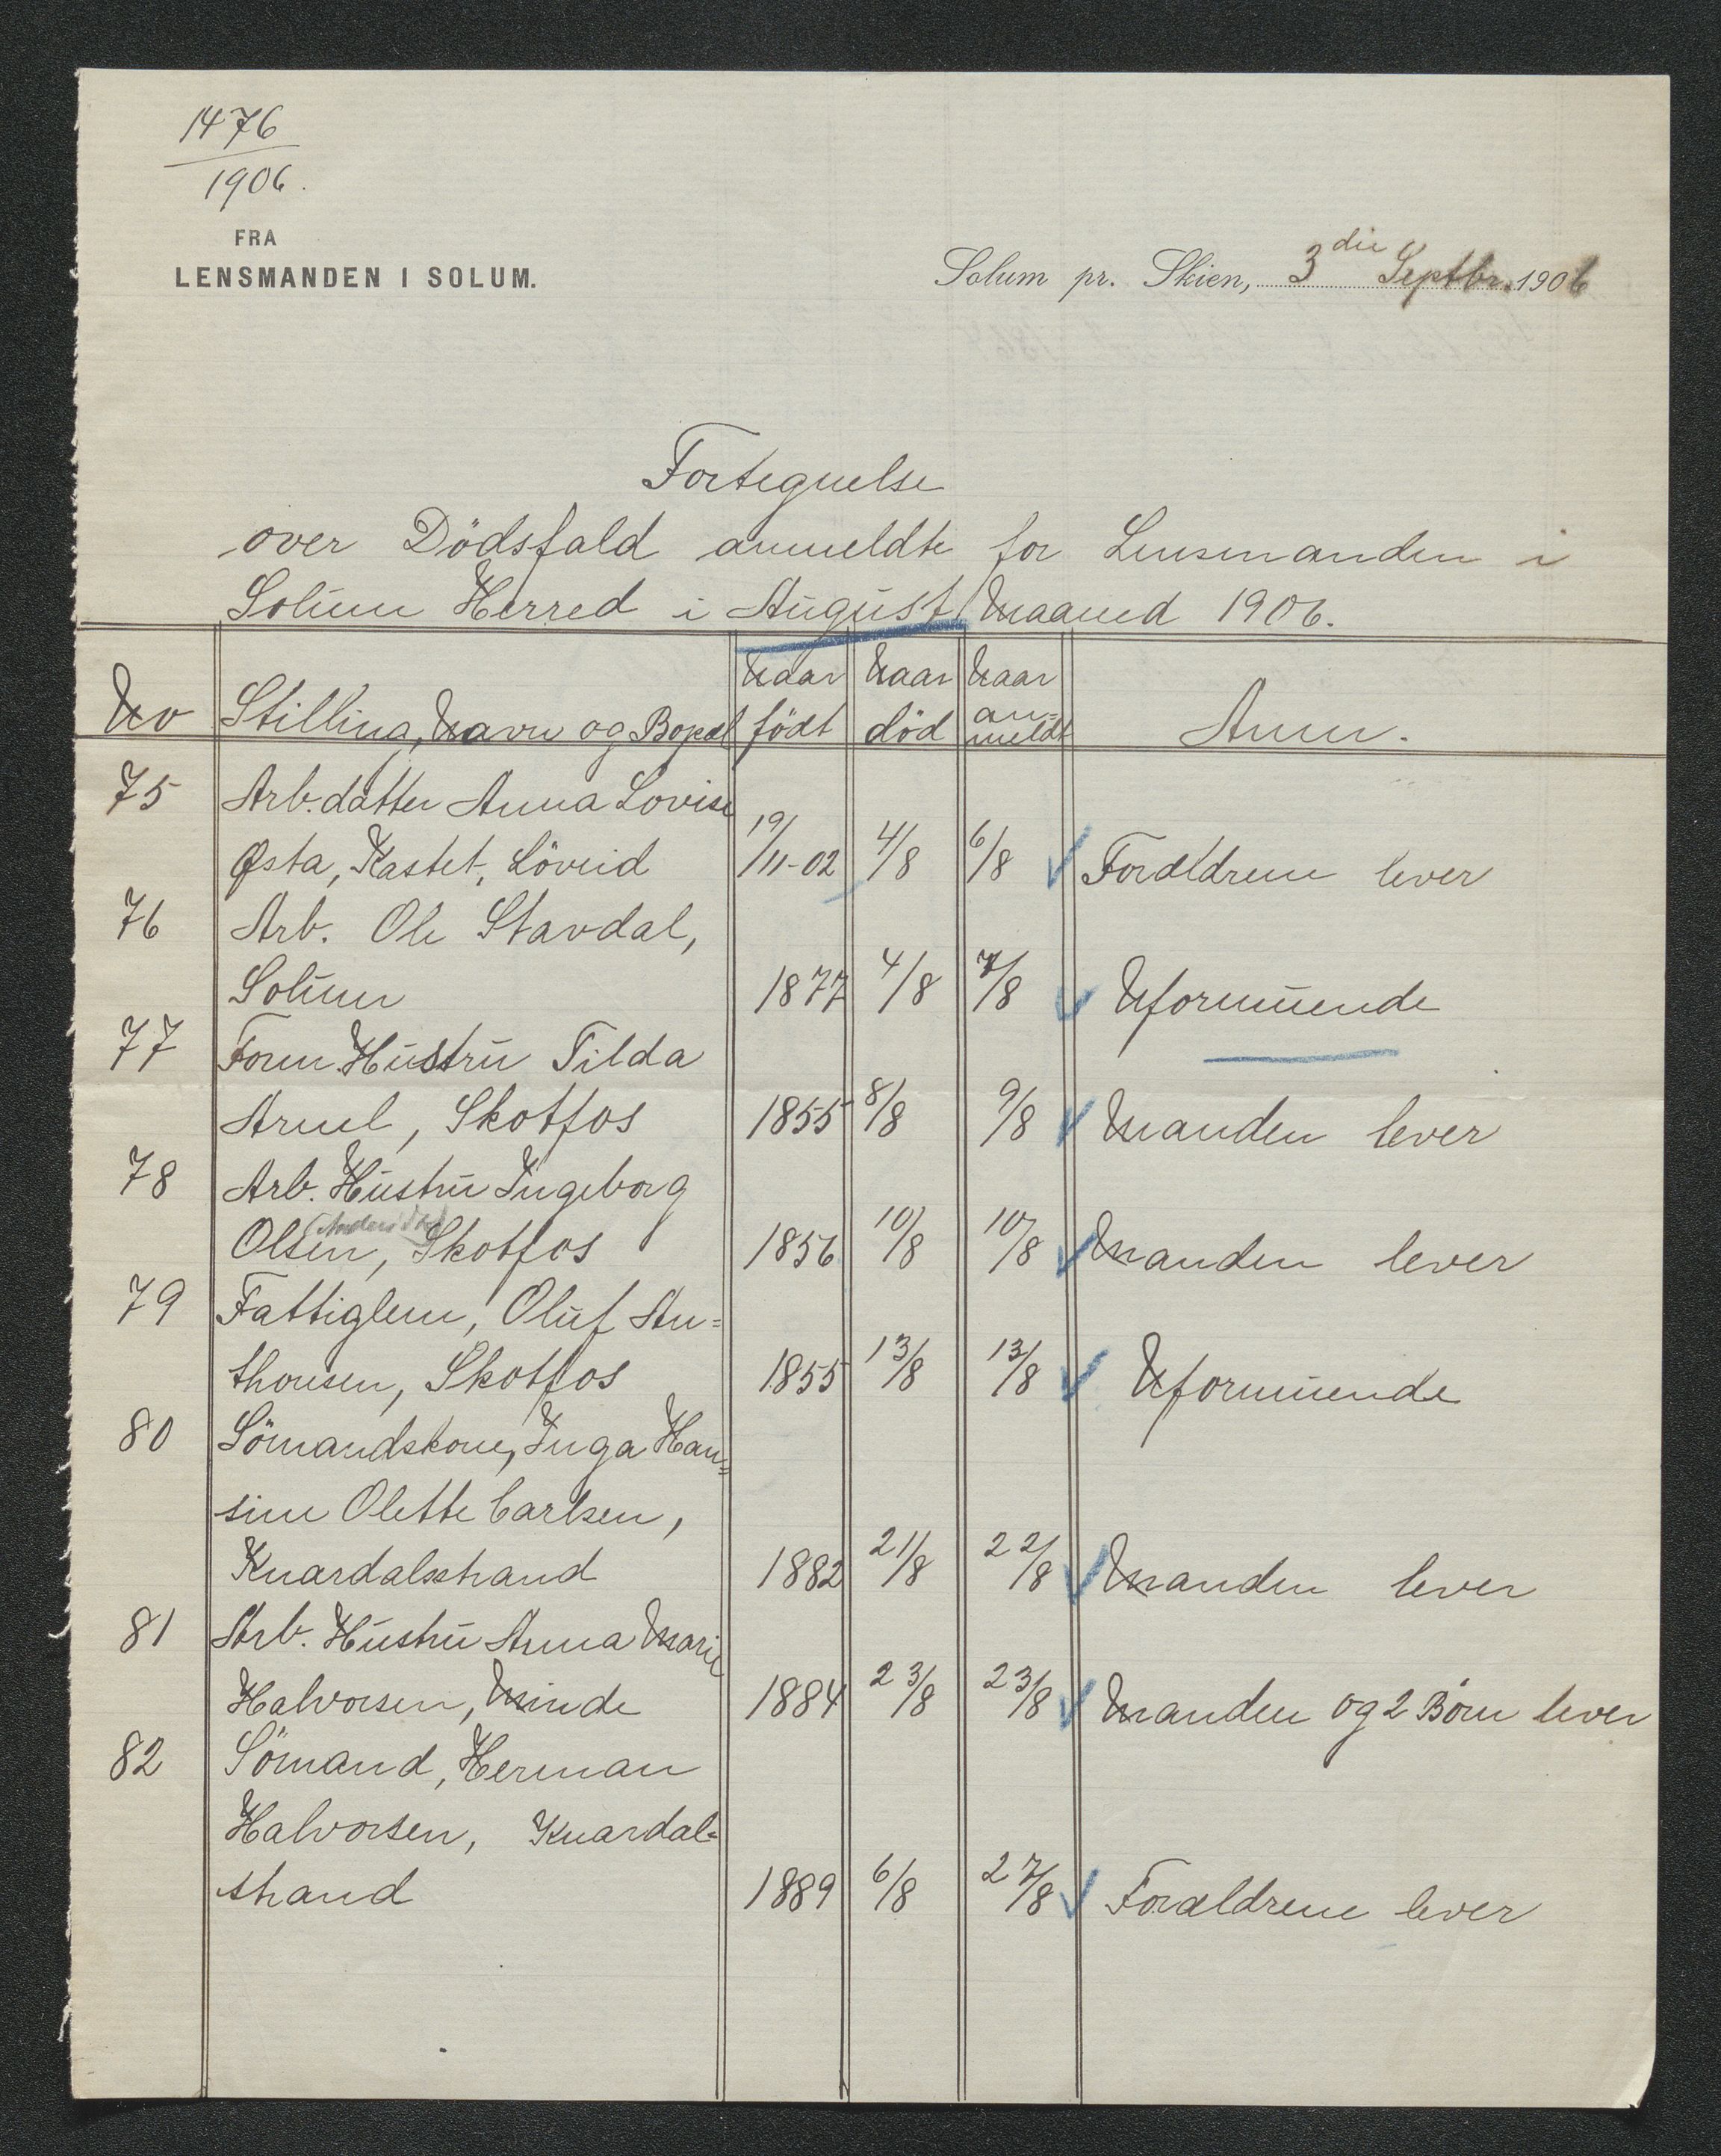 1476
1906.
FRA
LENSMANDEN I SOLUM.
Solum pr. Skien, 3die Septbr. 1906
Fortegnelse
over Dödsfald anmeldte for Lensmanden i
Solum Herred i August Maaned 1906.
No Stilling, Navn og Bopæl Naar födt Naar död Naar an=meldt Anm.
75 Arb. datter Anna Lovise
Østa, Kastet, Löveid 19/11-02 4/8 6/8 Forældrene lever
76 Arb. Ole Stavdal,
Solum 1877 4/8 7/8 Uformuende
77 Form. Hustru Tilda
Arnel, Skotfos 1855 8/8 9/8 Manden lever
78 Arb. Hustru Ingeborg
Olsen, Skotfos 1856 10/8 10/8 Manden lever
79 Fattiglem, Oluf An=
thonsen, Skotfos 1855 13/8 13/8 Uformuende
80 Sömandskone, Inga Han=
sine Olette Carlsen,
Knardalsstrand 1882 21/8 22/8 Manden lever
81 Arb. Hustru Anna Marie
Halvorsen, Minde 1884 23/8 23/8 Manden og 2 Börn lever
82 Sömand, Herman
Halvorsen, Knardal=
strand 1889 6/8 27/8 Forældrene lever